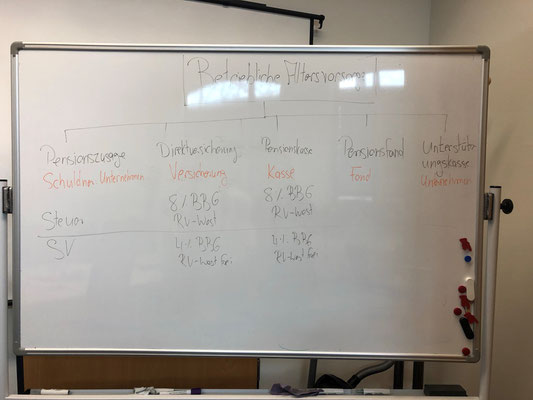 Betriebliche Altersvorsorge
Pensionszusage Direktversicherung Pensionskasse Pensionsfond Unterstütz-
ungskasse
Schuldner Unternehmen Versicherung Kasse Fond Unternehmen
8% BBG 8% BBG
Steuer RV-West RV-West
SV 4% BBG 4% BBG
RV-West frei RV-West frei